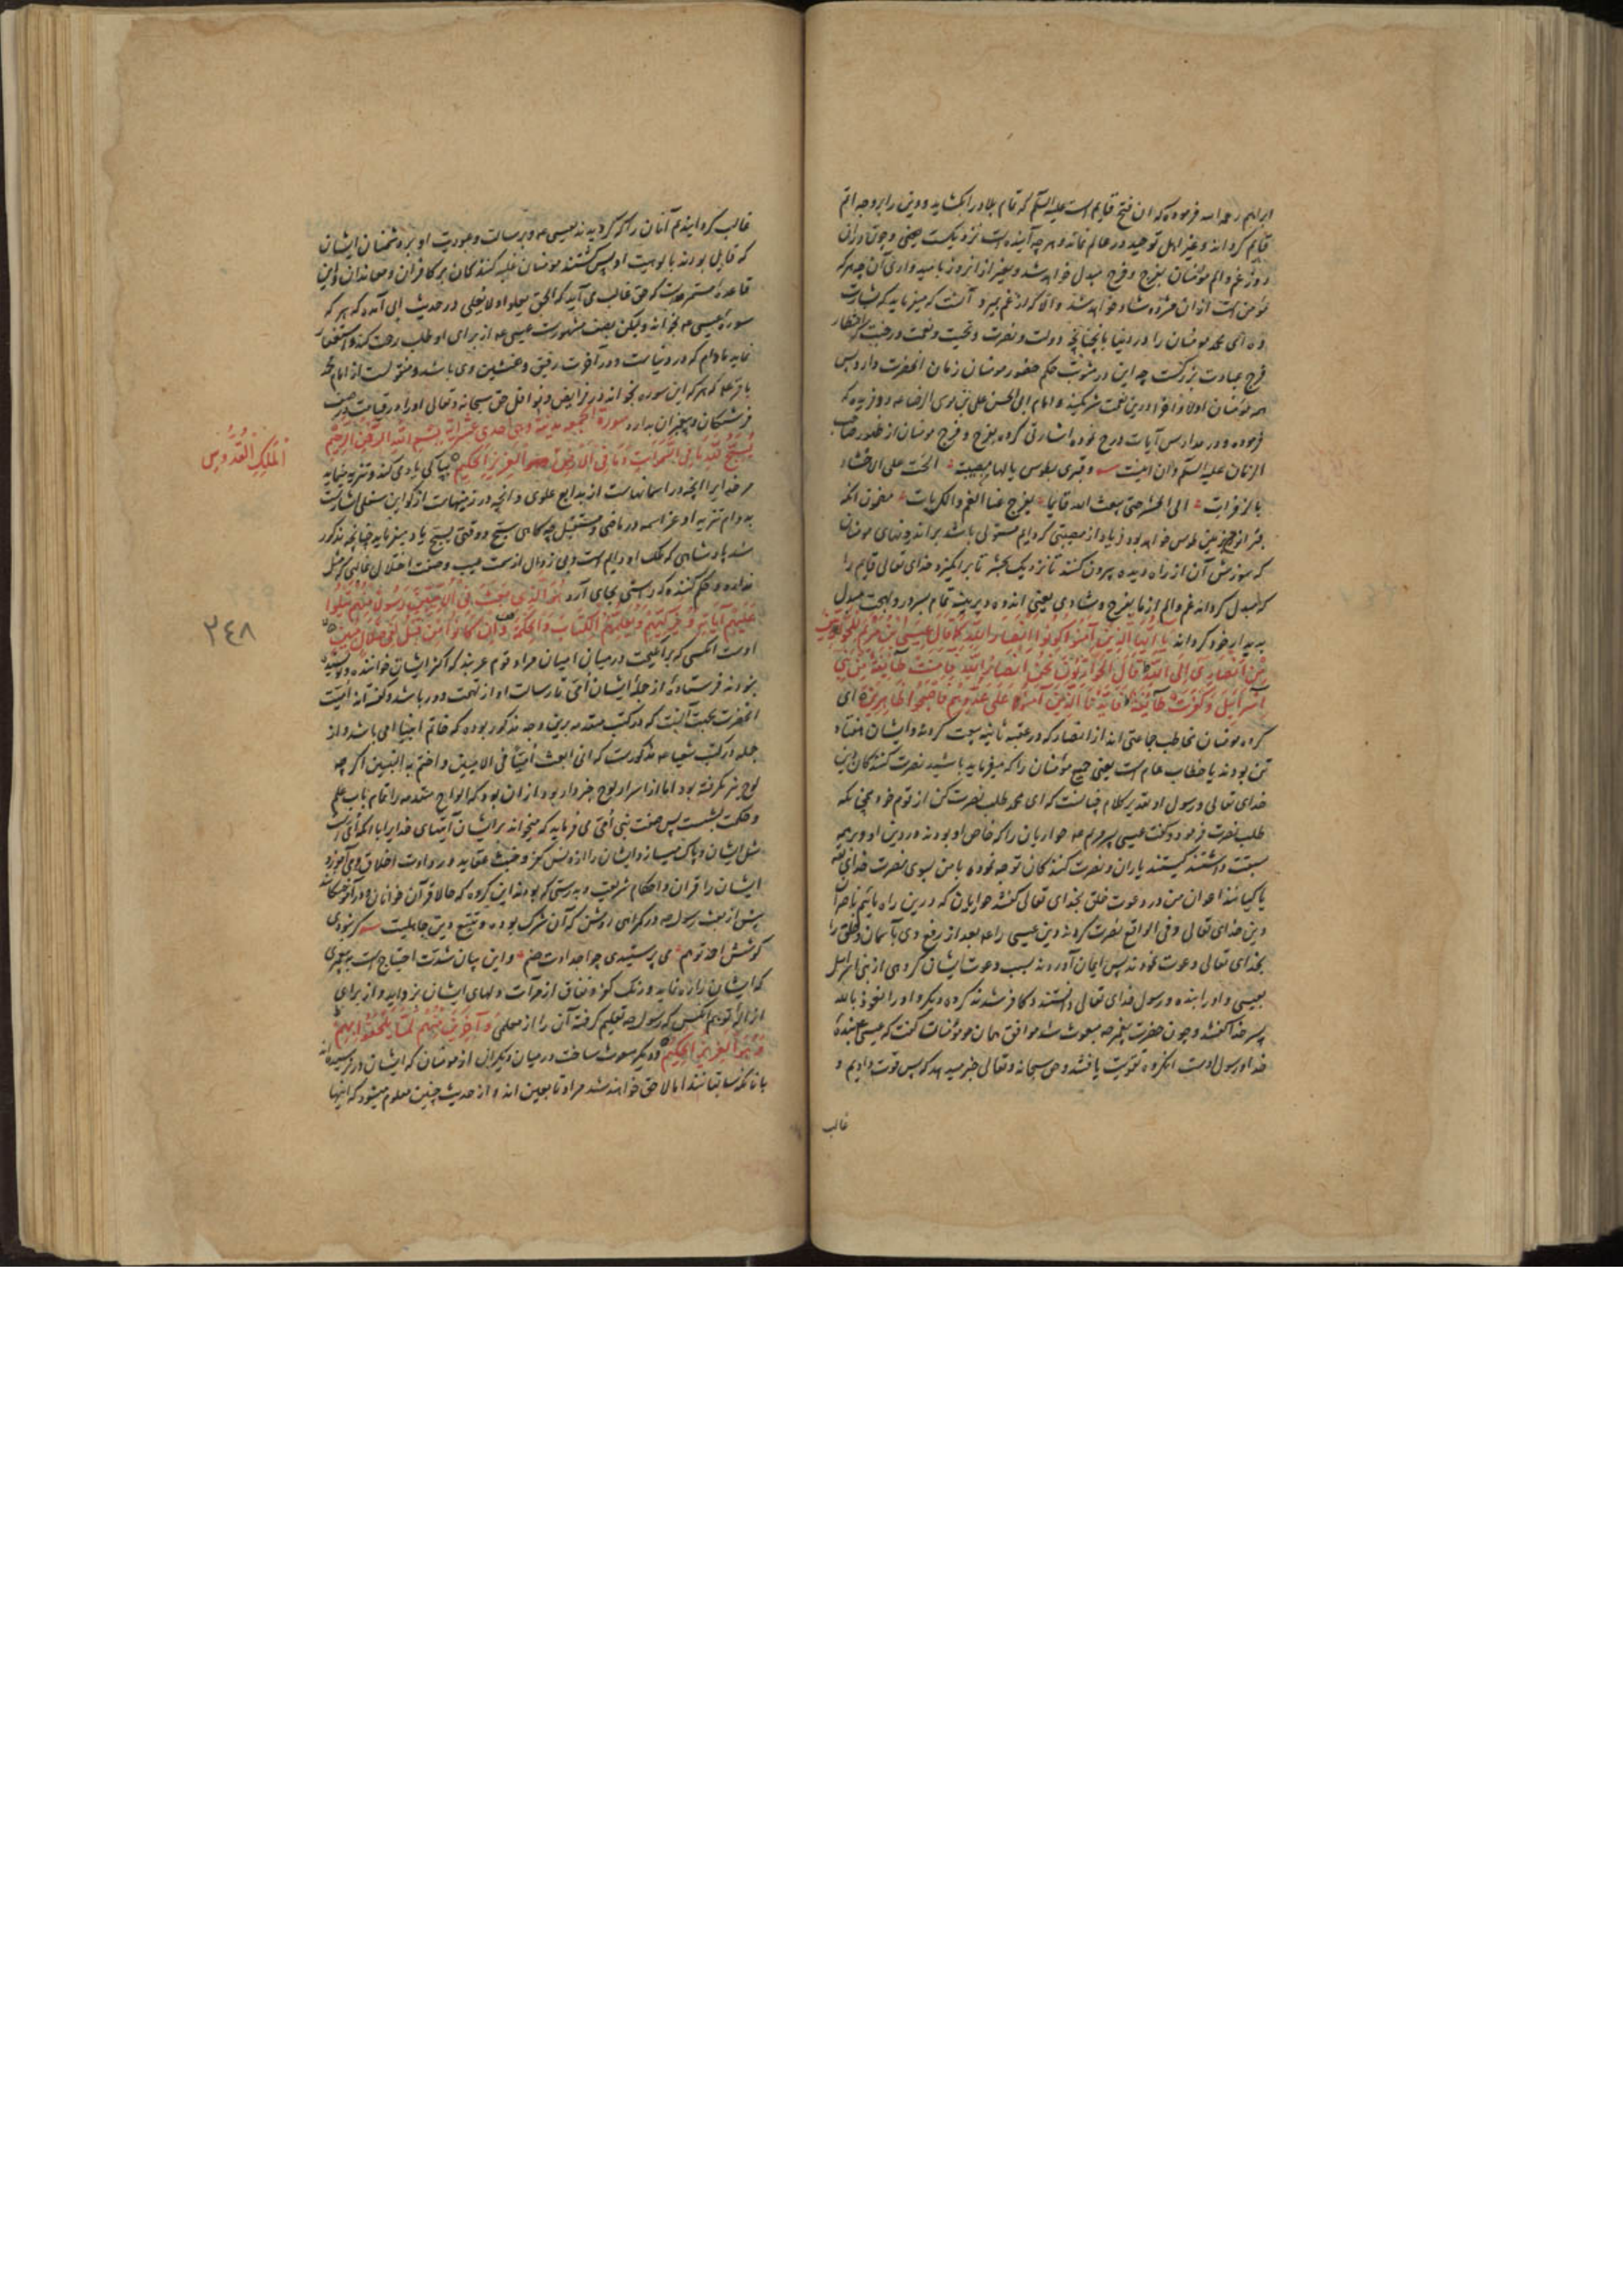 ابراهیم رحمه الله فرموده که ان فتح قایم است علیه السلم که تمام بلاد را بکشاید و دین را بروجه اتم
قایم کرداند و غیر اهل توحید در عالم نماند و هر چه آینده است نزدیکست یعنی و چون دران
روز غم و الم مؤمنان بفرح و فرج مبدل خواهد شد و بغیر از انروز بامیدواری آن چه هر که
مؤمن است ازان مژده شاد خواهد شد
ده ای محمد مومنان را در دنیا دولت و نصرت و نعمت
فرج عبادت بزرکست چه این در مثوبت حکم حضور مومنان زمان انحضرت دارد پس
همه مؤمنان اولا و اخرا درین نعمت شریکند و امام ابی الحسن علی بن موسی الرضا
فرموده و در مدارس آیات درج نموده اشارتی کرده بفرج و فرح مومنان از ظهور صاحب
الزمان علیه السلم و ان اینست و قبری بطوس یا لها من مصیبة الحت علی الاحشاء
بالزفرات الی الحشر حتی یبعث الله قایما یفرج عنا الغم و الکربات مضمون انکه
طوس خواهد بود زیاد از مصیبتی که دایم مستولی باشد بر اندرونهای مومنان
که سوزش آن از راه دیده بیرون کنند تا نزدیک بحشر تا برانکیزد خدای تعالی قایم را
که مبدل کرداند غم و الم از ما بفرح و شادی یعنی اندوه دیرینه تمام بسرور و بهجت مبدل
بدیدار خود کرداند یا ایها الذین آمنوا کونوا انصار الله کما قال عیسی ابن مریم للحواریین
من انصاری الی الله قال الحواریون نحن انصار الله فآمنت طایفة من بنی
اسرائیل و کفرت طایفة فایدنا الذین آمنوا علی عدوهم فاصبحوا ظاهرین ای
کروه مومنان مخاطب جماعتی اند از انصار که در عقبه ثانیه بیعت کردند و ایشان هفتاد
تن بودند یا خطاب عام است یعنی جمیع مؤمنان را که میفرماید باشید نصرت کنندکان دین
خدای تعالی و رسول او تقدیر کلام چنانست که ای محمد طلب نصرت کن از قوم خود همچنانکه
طلب نصرت فرمود و کفت عیسی پسر مریم حواریان را که خاص او بودند و در دین او و بر همه
سبقت داشتند کیستند یاران و نصرت کنندکان توجه نموده با من بسوی نصرت خدای
یا کیانند اعوان من در دعوت خلق بخدای تعالی کفتند حواریان که درین راه مائیم ناصران
دین خدای تعالی و فی الواقع نصرت کردند دین عیسی را بعد از رفع وی بآسمان و خلق را
بخدای تعالی دعوت نمودند پس ایمان آوردند بسبب دعوت ایشان کروهی از بنی اسرائیل
بعیسی و او را بنده و رسول خدای تعالی دانستند و کافر شدند کروه دیکر و او را نعوذ بالله
پسر خدا کفتند و چون حضرت پیغمبر مبعوث شد موافق همان مومنان کفت که عیسی بنده
خدا و رسول اوست انکروه تقویت یافتند و حق سبحانه و تعالی خبر میدهد که پس قوت دادیم و
غالب
غالب کردانیدیم آنان را که کرویدند بعیسی و برسالت و عبودیت او بر دشمنان ایشان
که قایل بودند بالوهیت او پس کشتند مومنان غلبه کنندکان بر کافران و معاندان و این
قاعده مستمره است که حق غالب می آید که الحق یعلو و لا یعلی در حدیث ابی آمده که هر که
سوره عیسی بخواند عیسی از برای او طلب رحمت کند و استغفار
نماید مادام که در دنیاست و در آخرت رفیق و همنشین وی باشد و منقولست از امام محمد
باقر که هر که این سوره بخواند در فرایض و نوافل حق سبحانه و تعالی او را در قیامت در صف
فرشتکان و پیغمبران بدارد سورة الجمعه مدنیة و هی احدی عشر آیة بسم الله الرحمن الرحیم
یسبح لله ما فی السموات و ما فی الارض العزیز الحکیم بپاکی یاد می کند و تنزیه مینماید
الملک القدوس
مر خدایرا انچه در اسمانهاست از بدایع علوی و انچه در زمینهاست از کواین سفلی اشارتست
بدوام تنزیه او عز اسمه در ماضی و مستقبل چه کاهی سبح و وقتی یسبح یاد میفرماید چنانچه مذکور
شد پادشاهی که ملک او دایم است و بی زوال از سمت عیب و صفت اختلال غالبی که مثل
ندارد و حکم کننده که راستی بجای آرد هو الذی بعث فی الامیین رسولا منهم یتلوا
علیهم آیاته و یزکیهم و یعلمهم الکتاب و الحکمة و ان کانوا من قبل لفی ضلال مبین
٢٤٨
اوست انکسی که برانکیخت درمیان امیان مراد قوم عربند که اکثر ایشان خواننده و نویسنده
نبودند فرستاده از جمله ایشان امی تا رسالت او از تهمت دور باشد و کفته اند امیت
انحضرت بجهت آنست که در کتب متقدمه برین وجه مذکور بوده که خاتم انبیا امی باشد و از
جمله در کتب شعیا مذکورست که انی ابعث امیا فی الامیین و اختم به النبیین اکر چه
لوح بر نکرفته بود اما از اسرار لوح خبردار بود از ان بود که الواح متقدمه را تمام بآب علم
و حکمت بشست پس صفت نبی امی می فرماید که میخواند بر ایشان آیتهای خدایرا با انکه امی است
مثل ایشان و پاک میسازد ایشان را از دنس کفر و خبث عقاید و رداءت اخلاق و می آموزد
ایشان را قران و احکام شریعت و بدرستی که بودند این کروه که حالا قرآن خوانان
پیش از بعثت رسول در کمراهی روشن که آن شرک بوده و تتبع دین جاهلیت کر نبودی
کوشش احمد تو هم می پرستیدی چو اجدادت صنم و این بیان شدت احتیاج است به پیغمبری
که ایشان را راه نماید و زنک کفر و نفاق از مرآت دلهای ایشان بزداید و از برای
ازاله توهم انکس که رسول تعلیم کرفته آن را از معلمی و آخرین منهم لما یلحقوا بهم
و هو العزیز الحکیم و دیکر مبعوث ساخت درمیان دیکران از مومنان که ایشان در نرسیده اند
بآنانکه سابقانند اما لاحق خواهند شد مراد تابعین اند و از حدیث چنین معلوم میشود که اینها